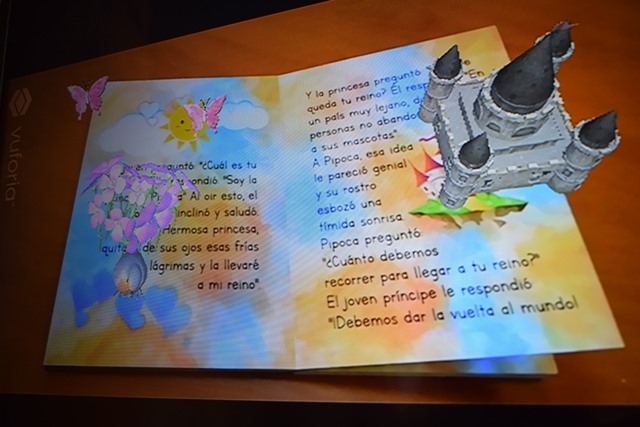 vuforia
guntó "¿Cuál es tu
ondió "Soy la
Al oir esto, el
inclinó y saludó.
Hermosa princesa,
quita de sus ojos esas frías
lágrimas y la llevaré
a mi reino"
Y la princesa preguntó
queda tu reino? Él
un país muy lejano,
personas no
a sus mascotas"
A Pipoca, esa idea
le pareció genial
y su rostro
esbozó una
tímida sonrisa.
Pipoca preguntó
"¿Cuánto debemos
recorrer para llegar a tu reino?"
El joven príncipe le respondió
"¡Debemos dar la vuelta al mundo!